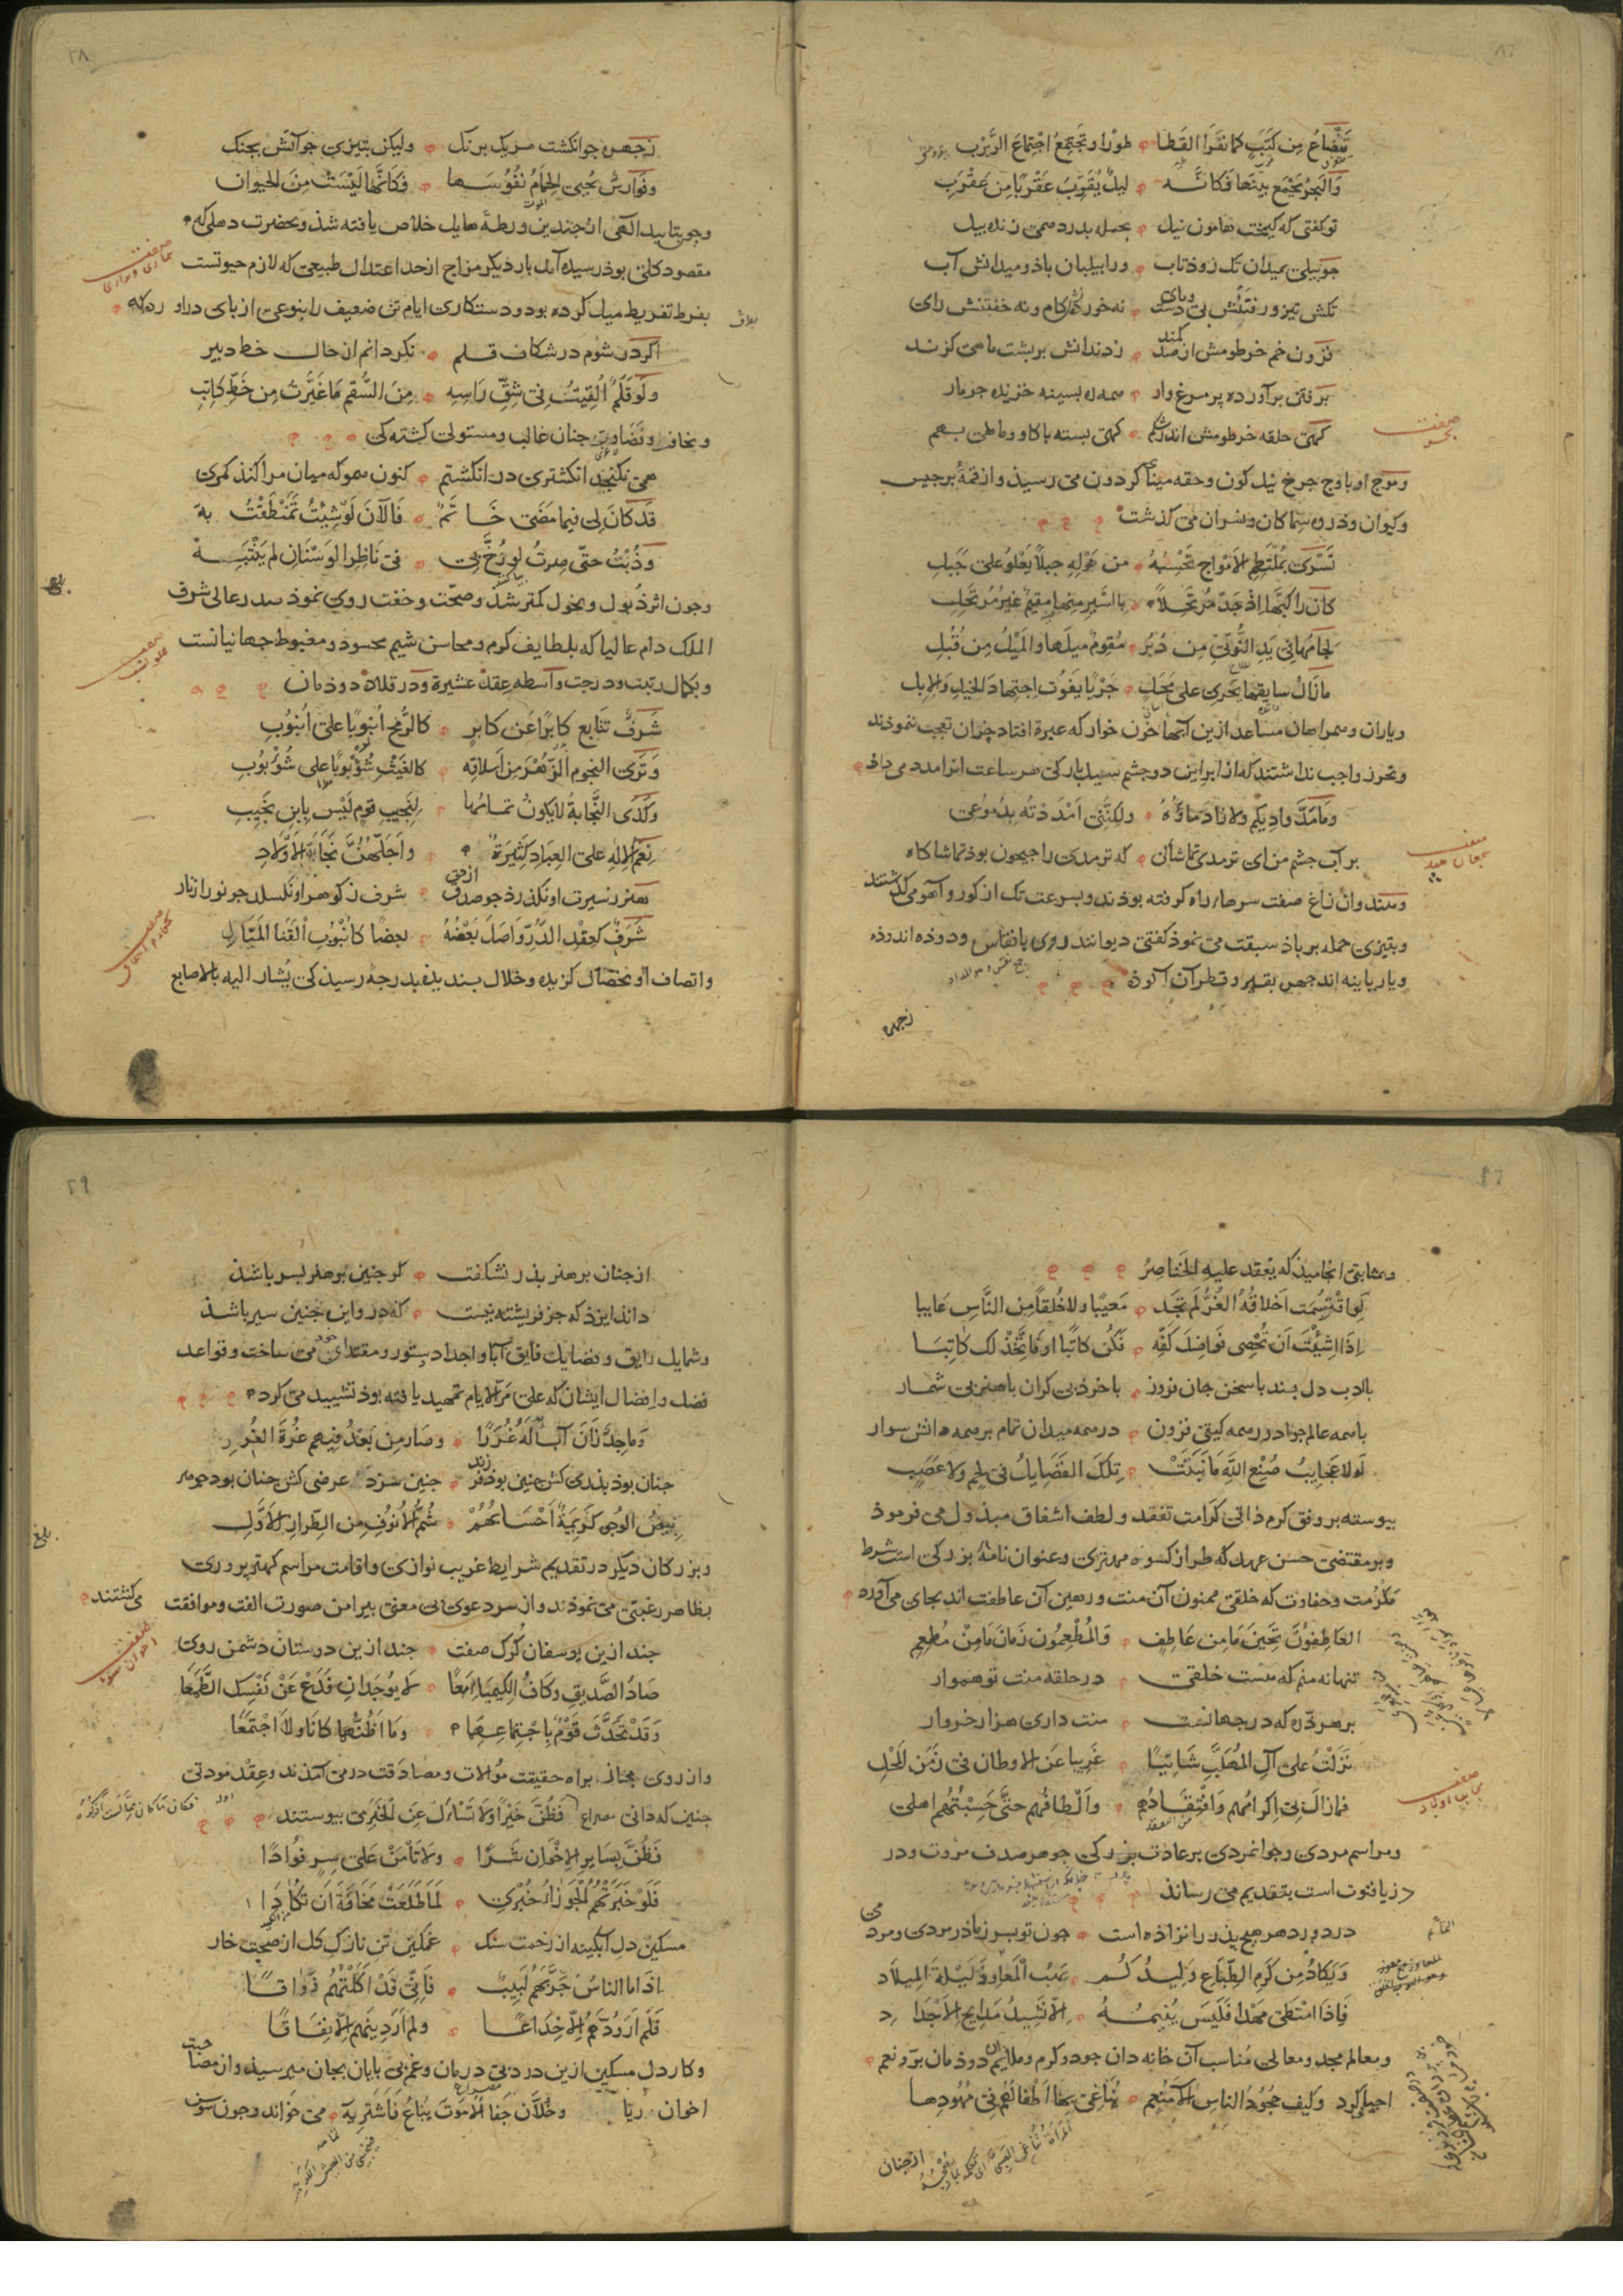 تنضاع من كثب كما نفر القطا طورا وتجتمع اجتماع الربرب
والبحر يجمع بينها فكانه ليل يقرب عقربا من عقرب
تو كفتى كه كيخت هامون نيل بحمله بدرد همى زنده بيل
جو بيلى بميدان تك زود تاب ورا بيلبان باد و ميدانش آب
تكش تيز و رفتنش بى دست و باى نه خوردنش كام و نه خفتنش راى
فزون خم خرطومش از صد كمند ز دندانش بر بشت ماهى كزند
بر فتى برآورده بر مرغ وار همه ره بسينه خزيده جو مار
كهى حلقه خرطومش اندر شكم كهى بسته با كاو و ماهى بهم
وموج او با اوج جرخ نيل كون وحقه مينا كردون مى رسيذ واز قمه برجيس
وكيوان وذروه سماكان ونسران مى كذشت
تسرى بملتطم الامواج تحسبه من هوله جبلا يعلو على جبل
كان راكبها اذ جد مرتحلا بالسير منها مقيم غير مرتحل
لجامها فى يد النوتى من دبر مقوم ميلها والميل من قبل
ما زال سايقها يجرى على عجل جريا يفوت اجتهاد الخيل والابل
وياران وهمراهان مساعد ازين آبها خون خوار كه عبرة افتاد جزان تعجب ننموذند
وتحرز واجب نداشتند كه از ابر اين دو جشم سيل بار كى هر ساعت انرا مدد مى داذ
وما مد واديكم ولا زاد ماؤه ولكننى امددته بدموعى
بر آب جشم من اى ترمدى تماشا كن كه ترمدى را جيحون بوذ تماشا كاه
وسمند وان زاغ صفت سرهاء راه كرفته بوذند وبسرعت تك از كور وآهو مى كذشتند
وبتيزى حمله بر باد سبقت مى نموذ كفتى ديوانند روى بانقاس ودوذه اندوذه
ويا زبانيه اند جهره بقير وقطران آلوذه
زجهره
٢٨
زجهره جو انكشت هر يك برنك وليكن بتيزى جو آتش بجنك
ونوارس يحيى الحمام نفوسها فكانها ليست من الحيوان
وجو بتاييد الهى از جندين ورطه هايل خلاص يافته شذ وبحضرت دهلى كه
مقصود كلى بوذ رسيده آمد بار ديكر مزاج از حد اعتدال طبيعى كه لازم حيوتست
بفرط تفريط ميل كرده بود ودستكارى ايام تن ضعيف را بنوعى از باى دراورده كه
اكر در شوم در شكاف قلم نكردانم از حال خط دبير
ولو قلم القيت فى شق راسه من السقم ما غيرت من خط كاتب
ونحافت وضاوى جنان غالب ومستولى كشته كى
همى نكنجد انكشترى در انكشتم كنون همو كه ميان مرا كند كمرى
قد كان لى فيما مضى خاتم فالآن لو شئت تمنطقت به
وذبت حتى صرت لو زج بى فى ناظر الوسنان لم ينتبه
وجون اثر ذبول ونحول كمتر شذ وصحت وخفت روى نموذ صدر عالى شرف
الملك دام عاليا كه بلطايف كرم ومحاسن شيم محسود ومغبوط جهانيانست
وبكمال رتبت ودرجت واسطه عقد عشيرة ودر قلاده دوذمان
شرف تتابع كابرا عن كابر كالرمح انبوبا على انبوب
وترى النجوم الزهر من اسلافه كالغيث شؤبوبا على شؤبوب
وكذى النجابة لا يكون تمامها لنجيب قوم ليس بابن نجيب
نعم الاله على العباد كثيرة واجلهن نجابة الاولاد
هنر ز سيرت او نكذرذ جو صدق از حق شرف ز كوهر او نكسلد جو نور از نار
شرف كعقد الدر واصل بعضه بعضا كانبوب القنا المياد
واتصاف او بخصال كزيده وخلال بسنديذه بدرجه رسيذ كى يشار اليه بالاصابع
وبمثابتى انجاميذ كه يعقد عليه الخناصر
لو اقتسمت اخلاقه الغر لم تجد معيبا ولا خلقا من الناس عايبا
اذا شئت ان تحصى فواضل كفه فكن كاتبا او فاتخذ لك كاتبا
با ادب دل بسند با سخن جان فروز با خرد بى كران با هنر بى شمار
با همه عالم جواد در همه كيتى فزون در همه ميدان تمام بر همه دانش سوار
لولا عجايب صنع الله ما نبتت تلك الفضايل فى لحم ولا عصب
بيوسته بر وفق كرم ذاتى كرامت تفقد ولطف اشفاق مبذول مى فرموذ
وبر مقتضى حسن عهد كه طراز كسوه مهترى وعنوان نامه بزركى است شرط
مكرمت وحفاوت كه خلقى ممنون آن منت ورهين آن عاطفت اند بجاى مى آورد
العاطفون تحين ما من عاطف والمطعمون زمان ما من مطعم
تنها نه منم كه هست خلقى در حلقه منت تو هموار
بر هر ذره كه در جهانست منت دارى هزار خروار
نزلت على آل المهلب شاتيا غريبا عن الاوطان فى زمن المحل
فما زال بى اكرامهم وافتقادهم والطافهم حتى حسبتهم اهلى
ومراسم مردى وجوانمردى بر عادت بزركى جوهر صدف مروت ودر
درياء فتوت است بتقديم مى رساند
در دور دهر هيج بذر را نزاذه است جون تو بسر ز ماذر مردى ومردمى
ويكاد من كرم الطباع وليدكم يهب المعاوذ ليلة الميلاد
فاذا امتطى مهدا فليس ينيمه الا نشيد مدايح الاجداد
ومعالم مجد ومعالى مناسب آن خانه دان جود وكرم وملايم آن دوذمان بر ونعم
احيا كرد وكيف جحود الناس لانعم يناغى بها اطفالهم فى مهودها
ازجنان
٢٩
از جنان بر هنر بذر نشكفت كر جنين بر هنر بسر باشذ
داند ايزد كه جز فريشته نيست كه درو اين جنين سير باشذ
وشمايل رايق وفضايل فايق آبا واجداد دستور ومقتداى خود مى ساخت وقواعد
فضل وافضال ايشان كه على مر الايام تمهيد يافته بوذ تشييد مى كرد
وماجد زان آباء له غررا وصار من بعد فيهم غرة الغرر
جنان بود بذرى كش جنين بوذ فرزند جنين سزد عرضى كش جنان بود جوهر
بيض الوجوه كريمة احسابهم شم الانوف من الطراز الاول
وبزركان ديكر در تقديم شرايط غريب نوازى واقامت مراسم كهتر برورى
بظاهر رغبتى مى نموذند واز سر دعوى بى معنى بيرامن صورت الفت وموافقت مى كشتند
جند ازين يوسفان كرك صفت جند ازين دوستان دشمن روى
صاد الصديق وكاف الكيمياء معا لا يوجدان فدع عن نفسك الطمعا
وقد تحدث قوم باجتماعهما وما اظنهما كانا ولا اجتمعا
واز روى مجاز براه حقيقت موالات ومصادقت درمى آمذند وعقد مودتى
جنين كه دانى مصراع فظن خيرا ولا تسأل عن الخبر مى بيوستند
فظن بساير الاخوان شرا ولا تأمن على سر فوادا
فلو خبرتهم الجوزاء خبرى لما طلعت مخافة ان تكادا
مسكين دل آبكينه از زخمت سنك غمكين تن نازك كل از صحبت خار
اذا ما الناس جربهم لبيب فانى قد اكلتهم ذواقا
فلم ار ودهم الا خداعا ولم ار دينهم الا نفاقا
وكار دل مسكين ازين درد بى درمان وغم بى بايان بجان مى رسيذ واز مصاحبت
اخوان ريا وخلان جفا الا موت يباع فاشتريه مى خواند وجون سوسن